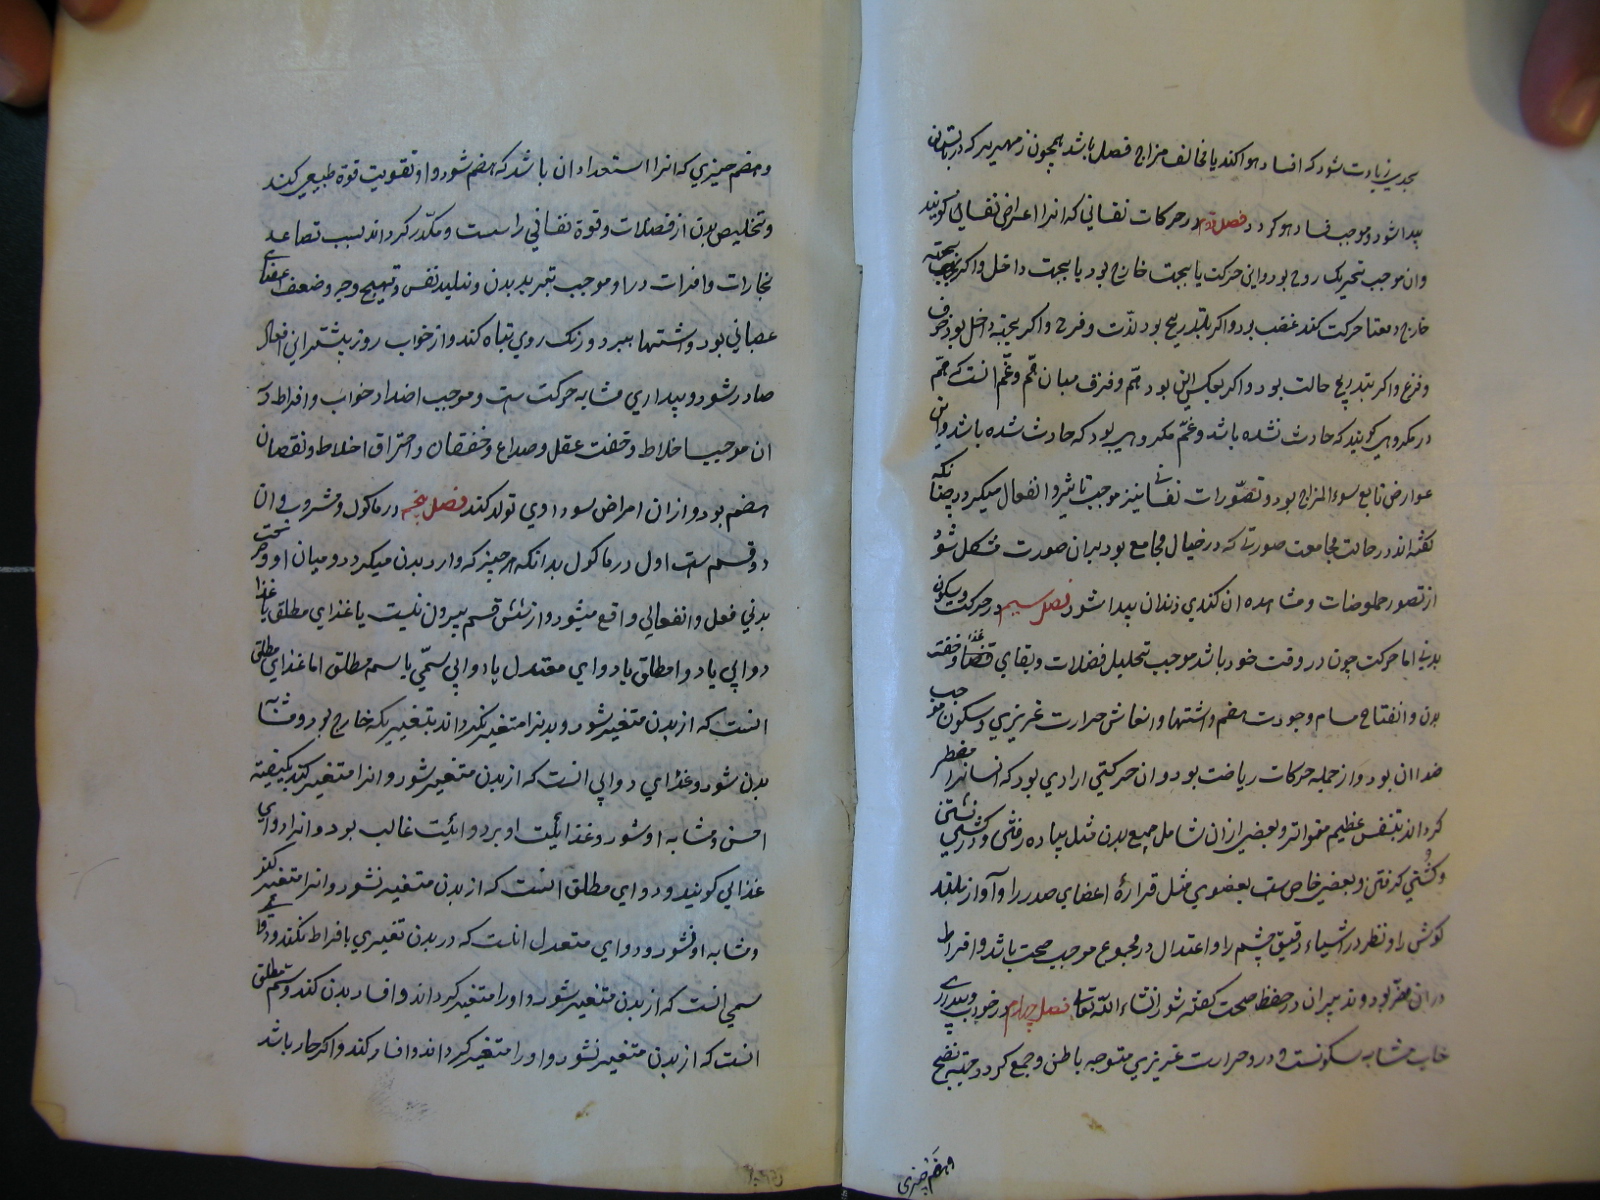 بحدی زیادت شود که افساد هوا کند یا مخالف مزاج فصل باشد همچون زمهریر که در تابستان
پیدا شود و موجب فساد هوا کردد فصل دوم در حرکات نفسانی که انرا اعراض نفسانی کویند
وان موجب تحریک روح بود و این حرکت یا بجهت خارج بود یا بجهت داخل واکر بجهته
خارج دفعتا حرکت کند غضب بود واکر بتدریج بود لذت و فرح واکر بجهته داخل بود خوف
و فزع واکر بتدریج حالت بود واکر بعکس این بود هم وفرق میان هم وغم انست که هم
در مکروهی کویند که حادث نشده باشد وغم مکروهی بود که حادث شده باشد واین
عوارض تابع سوء المزاج بود وتصورات نفسانی نیز موجب تاثیر وانفعال میکردد چنانکه
کفته اند در حالت مجامعت صورتی که در خیال مجامع بود بران صورت متشکل شود و
از تصور حموضات ومشاهده ان کندی دندان پیدا شود فصل سیم در حرکت وسکون
بدنی اما حرکت چون در وقت خود باشد موجب تحلیل فضلات وبقای وخفت
بدن وانفتاح مسام وجودت هضم واشتها وانعاش حرارت غریزی وسکون موجب
ضد ان بود واز جمله حرکات ریاضت بود وان حرکتی ارادی بود که انسانرا مضطر
کرداند بتنفس عظیم متواتر وبعضی ازان شامل جمیع بدن مثل پیاده رفتن ودر کشتی نشستن
وکشتی کرفتن وبعضی خاص ست بعضوی مثل قراءة اعضای صدر را وآواز بلند
کوش را ونظر در اشیاء دقیق چشم را واعتدال در مجموع موجب صحت باشد وافراط
دران مضر بود وتدبیر ان در حفظ صحت کفته شود انشاء الله تعالی فصل چهارم در خواب وبیداری
خواب مشابه سکونست ودرو حرارت غریزی متوجه باطن وجمع کردد جهته نضج
وهضم چیزی
وهضم چیزی که انرا استعداد ان باشد که هضم شود واو تقویت قوة طبیعی کند
وتخلیص بدن از فضلات وقوة نفسانی را سست ومکدر کرداند بسبب تصاعد
بخارات وافراط درو موجب تبرید بدن وتبلید نفس وتهیج وجه وضعف اعضای
عصبانی بود واشتها ببرد ورنک روی تباه کند واز خواب روز بیشتر این افعال
صادر شود وبیداری مشابه حرکت ست وموجب اضداد خواب وافراط در
ان موجب اخلاط وخفت عقل وصداع وخفقان واحتراق اخلاط ونقصان
هضم بود وازان امراض سوداوی تولد کند فصل پنجم در ماکول ومشروب وان
دو قسم ست اول در ماکول بدانکه هر چیز که وارد بدن میکردد ومیان او و
بدنی فعل وانفعالی واقع میشود واز شش قسم بیرون نیست یا غذای مطلق یا غذا
دوایی یا دوا مطلق یا دوای معتدل یا دوایی سمی یا سم مطلق اما غذای مطلق
انست که از بدن متغیر شود وبدنرا متغیر نکرداند بتغییری که خارج بود ومشابه
بدن شود وغذای دوایی انست که از بدن متغیر شود وانرا متغیر کند بکیفیته
احسن ومشابه او شود وغذائیت او بر دوائیت غالب بود وانرا دوای
غذایی کویند ودوای مطلق انست که از بدن متغیر نشود وانرا متغیر کند
ومشابه او نشود ودوای معتدل انست که در بدن تغییری بافراط نکند ودوای
سمی انست که از بدن متغیر شود واورا متغیر کرداند وافساد بدن کند وسم مطلق
انست که از بدن متغیر نشود واورا متغیر کرداند وافساد کند واکر حار باشد